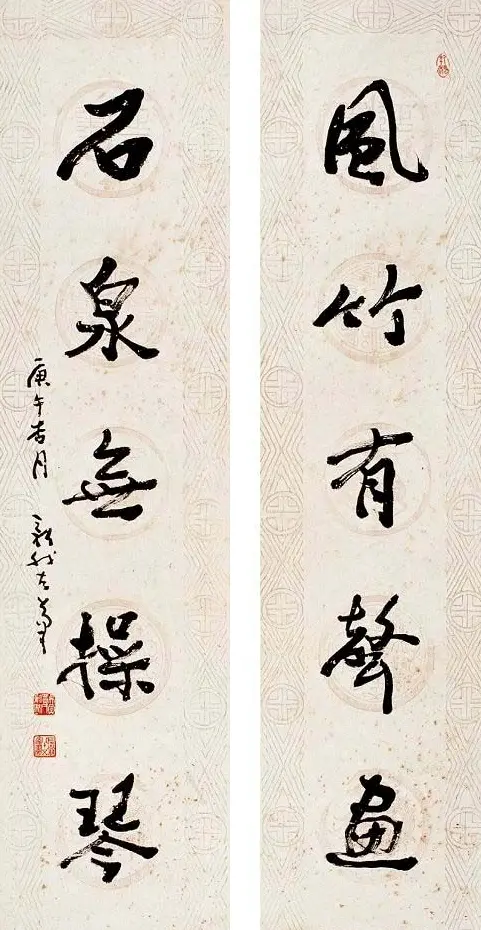 風竹有聲畫
石泉無操琴
庚午杏月
新我左